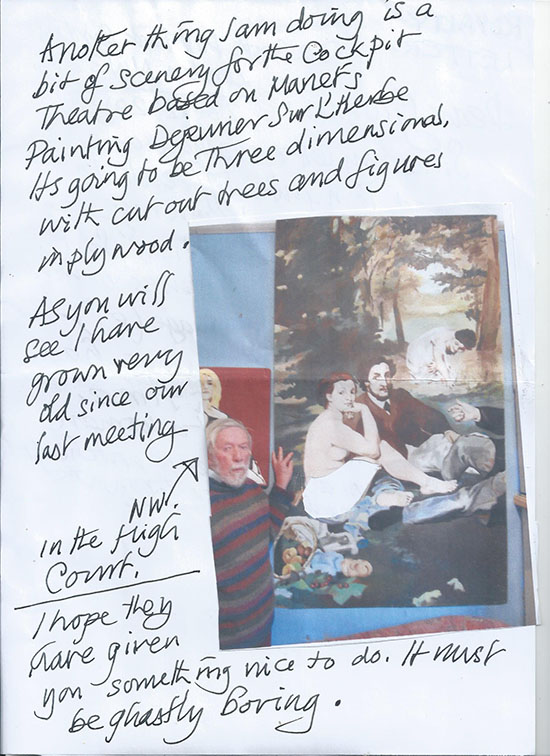 Another thing I am doing is a
bit of scenery for the Cockpit
Theatre based on Manet's
Painting Dejeuner Sur L'Herbe
Its going to be Three dimensional,
with cut out trees and figures
in plywood.
As you will
see I have
grown very
old since our
last meeting
NW.
in the High
Court.
I hope they
have given
you something nice to do. It must
be ghastly boring.